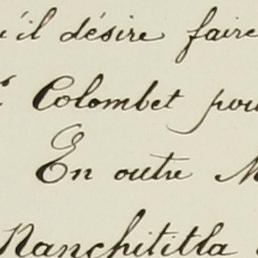 qu'il désire faire
Colombet pou
En outre M
Nanchititla